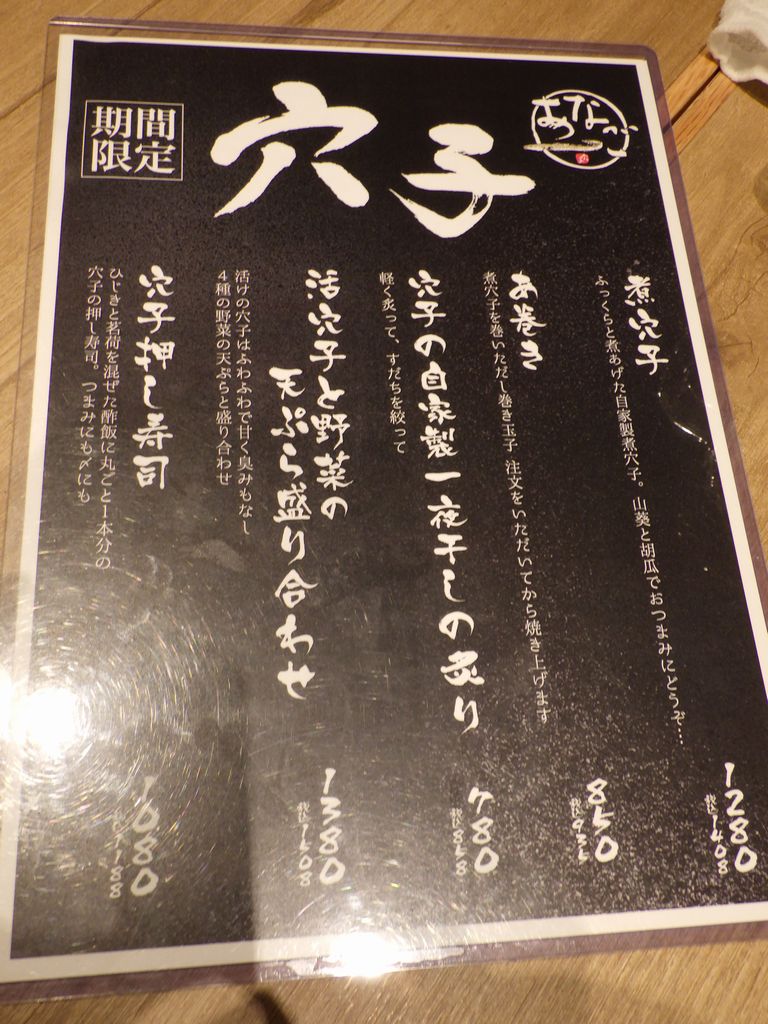 穴子
期間
限定
あなご
煮穴子
ふっくらと煮あげた自家製煮穴子。山葵と胡瓜でおつまみにどうぞ…
1280
税込1408
あ巻き
煮穴子を巻いただし巻き玉子 注文をいただいてから焼き上げます
850
税込935
穴子の自家製一夜干しの炙り
軽く炙って、すだちを絞って
780
税込858
活穴子と野菜の
天ぷら盛り合わせ
活けの穴子はふわふわで甘く臭みもなし
4種の野菜の天ぷらと盛り合わせ
1380
穴子押し寿司
ひじきと茗荷を混ぜた酢飯に丸ごと1本分の
穴子の押し寿司。つまみにも〆にも
1080
税込1188